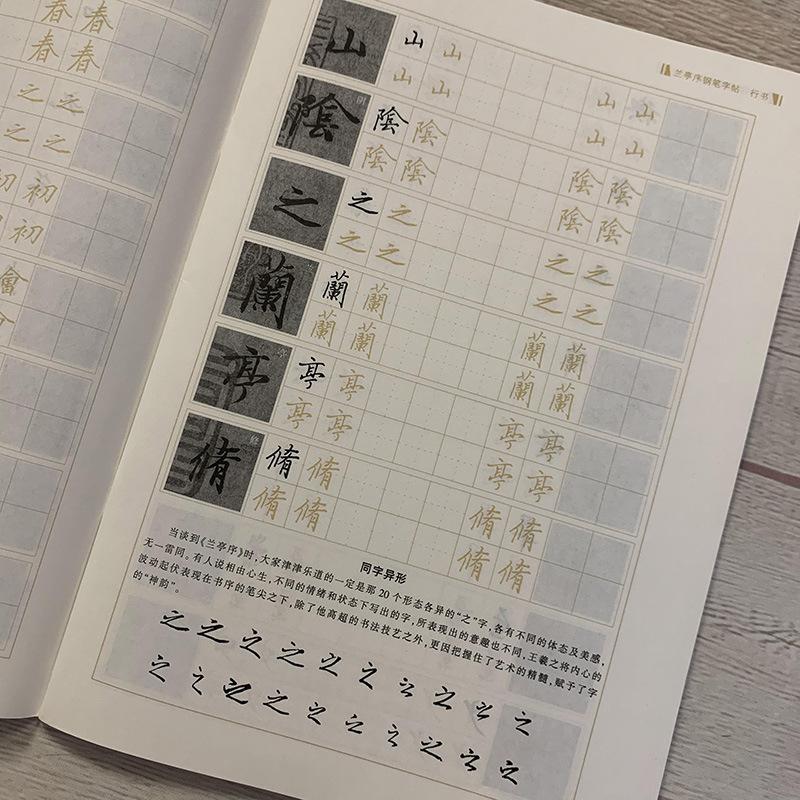 春 春
春 春
之 之
之 之
初 初
初
會
兰亭序钢笔字帖 行书
山 山 山 山 山
山 山 山 山
陰 陰 陰 陰 陰
陰 陰 陰 陰
之 之 之 之 之
之 之 之 之
蘭 蘭 蘭 蘭 蘭
蘭 蘭 蘭 蘭
亭 亭 亭 亭 亭
亭 亭 亭 亭
脩 脩 脩 脩 脩
脩 脩 脩 脩
同字异形
当谈到《兰亭序》时,大家津津乐道的一定是那20个形态各异的“之”字,各有不同的体态及美感,
无一雷同。有人说相由心生,不同的情绪和状态下写出的字,所表现出的意趣也不同,王羲之将内心的
波动起伏表现在书序的笔尖之下,除了他高超的书法技艺之外,更因把握住了艺术的精髓,赋予了字
的“神韵”。
之 之 之 之 之 之 之 之 之 之
之 之 之 之 之 之 之 之 之 之